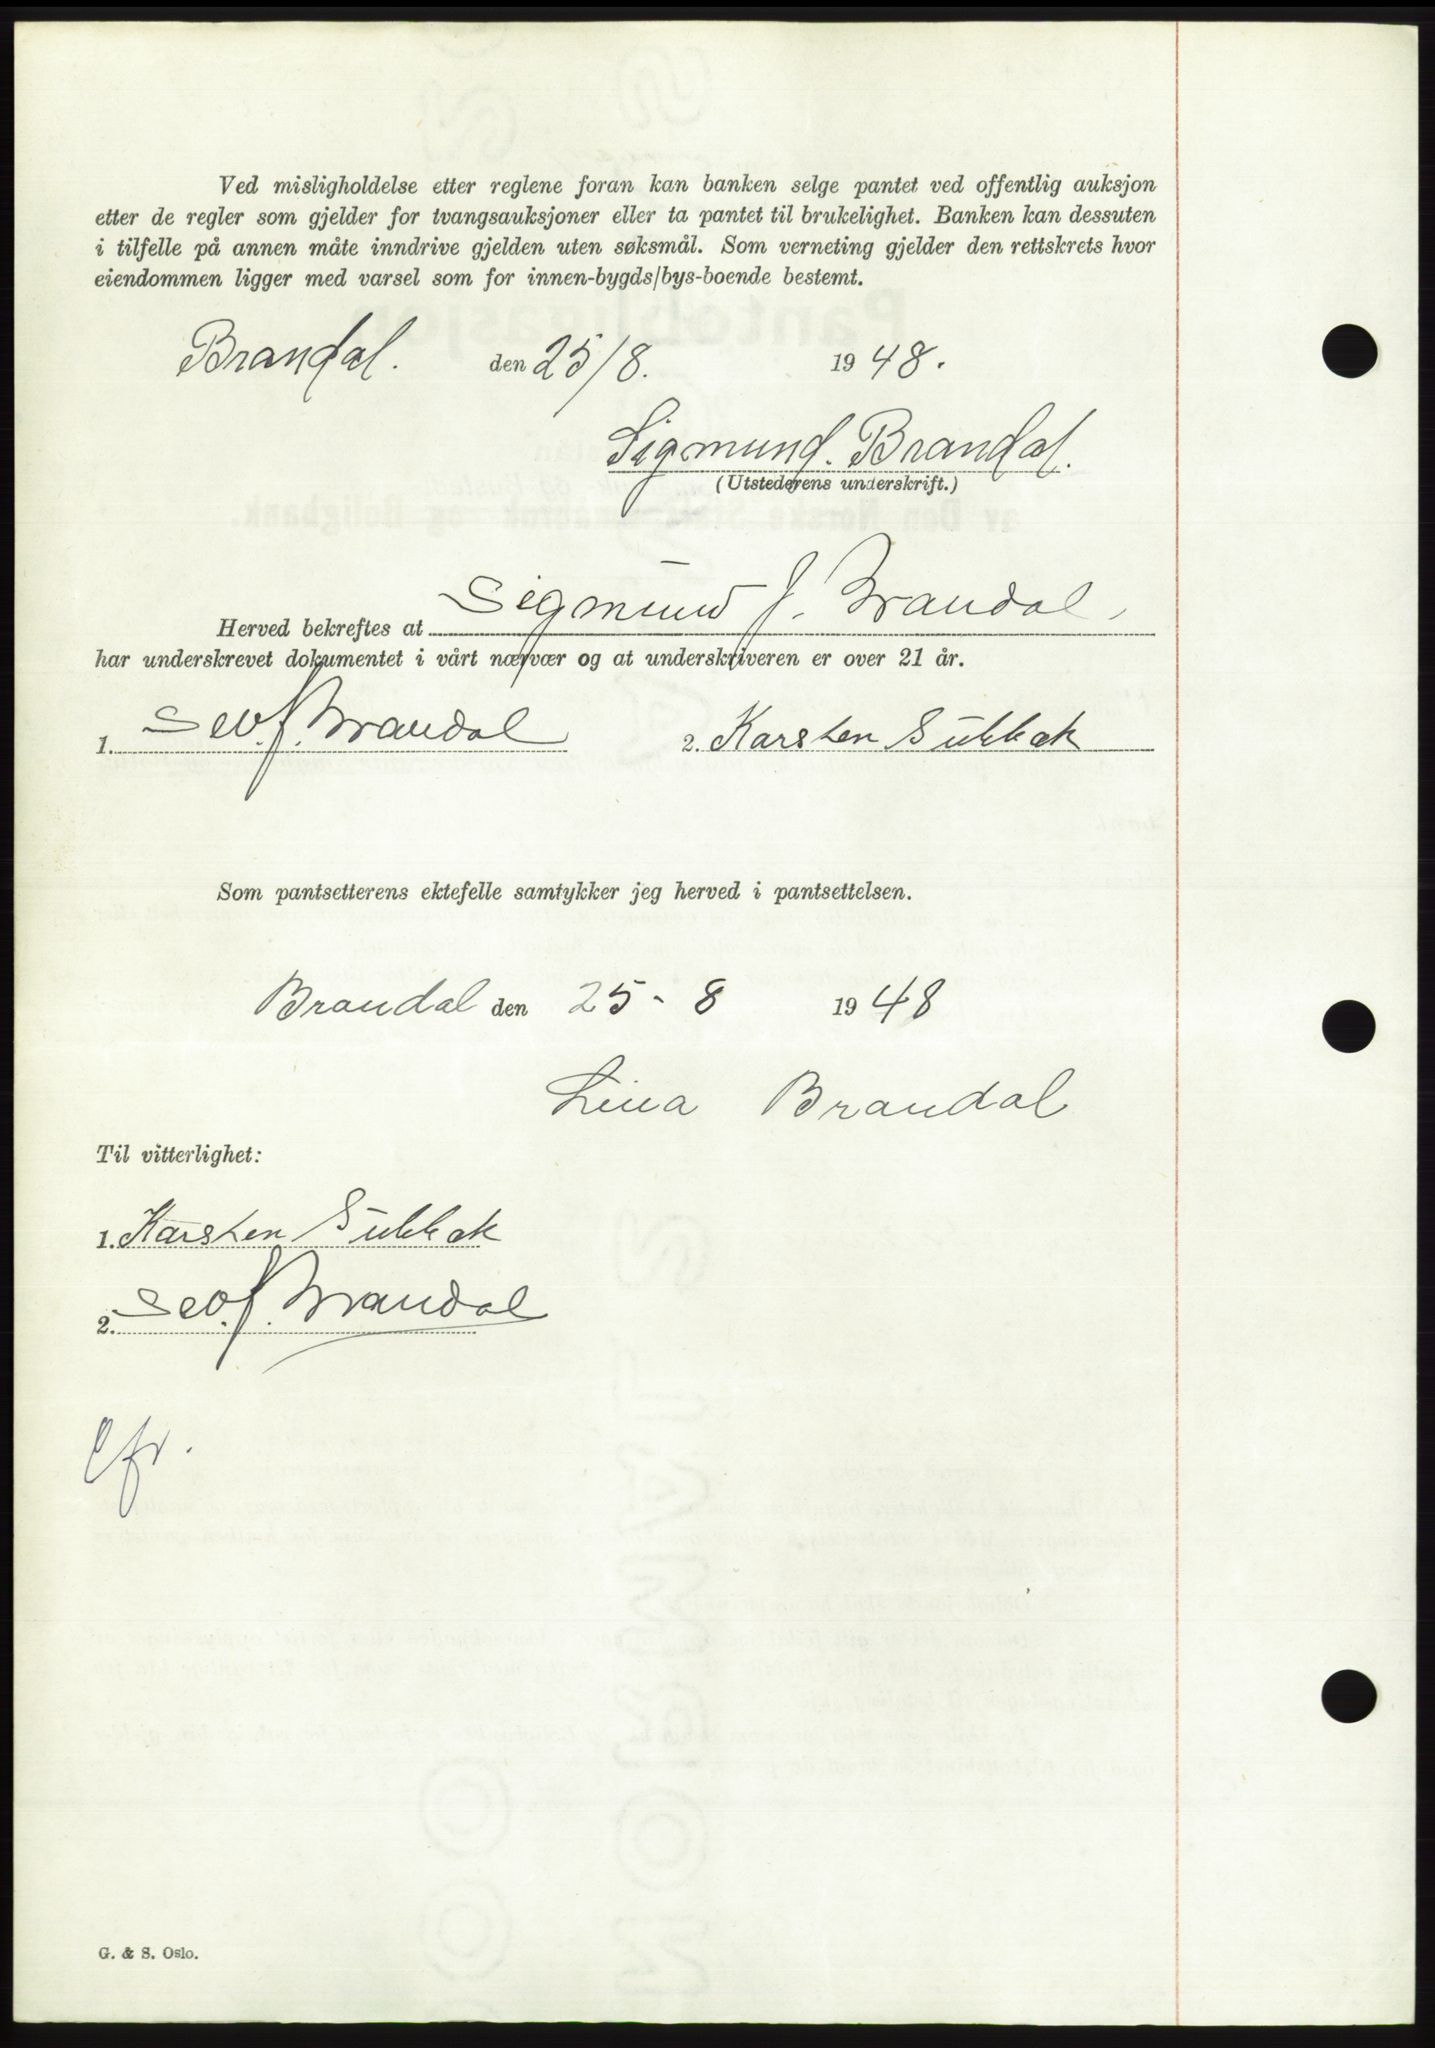 Ved misligholdelse etter reglene foran kan banken selge pantet ved offentlig auksjon
etter de regler som gjelder for tvangsauksjoner eller ta pantet til brukelighet. Banken kan dessuten
i tilfelle på annen måte inndrive gjelden uten søksmål. Som verneting gjelder den rettskrets hvor
eiendommen ligger med varsel som for innen-bygds/bys-boende bestemt.
Brandal. den 25/8. 1948.
Sigmund. Brandal.
(Utstederens underskrift.)
Herved bekreftes at Sigmund J. Brandal,
har underskrevet dokumentet i vårt nærvær og at underskriveren er over 21 år.
1. Sev. J. Brandal 2. Karsten Sukkak
Som pantsetterens ektefelle samtykker jeg herved i pantsettelsen.
Brandal den 25-8 1948
Lina Brandal
Til vitterlighet:
1. Karsten Sukkak
2. Sev. J. Brandal
Cfr.
G. & S. Oslo.